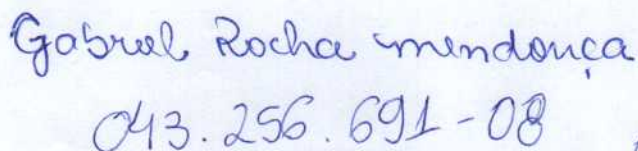 Gabriel Rocha mendonça
043.256.691-08